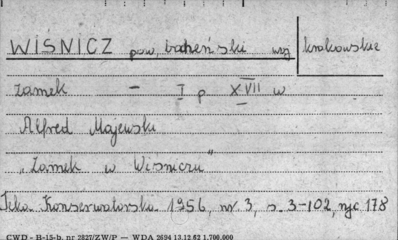 WIŚNICZ pow. bocheński woj krakowskie
zamek – I p XVII w
Alfred Majewski
„Zamek w Wiśniczu"
Teka Konserwatorska 1956, nr 3, s. 3–102, ryc 178
CWD - B-15-b. nr 2827/ZW/P — WDA 2694 13.12.62 1.700.000